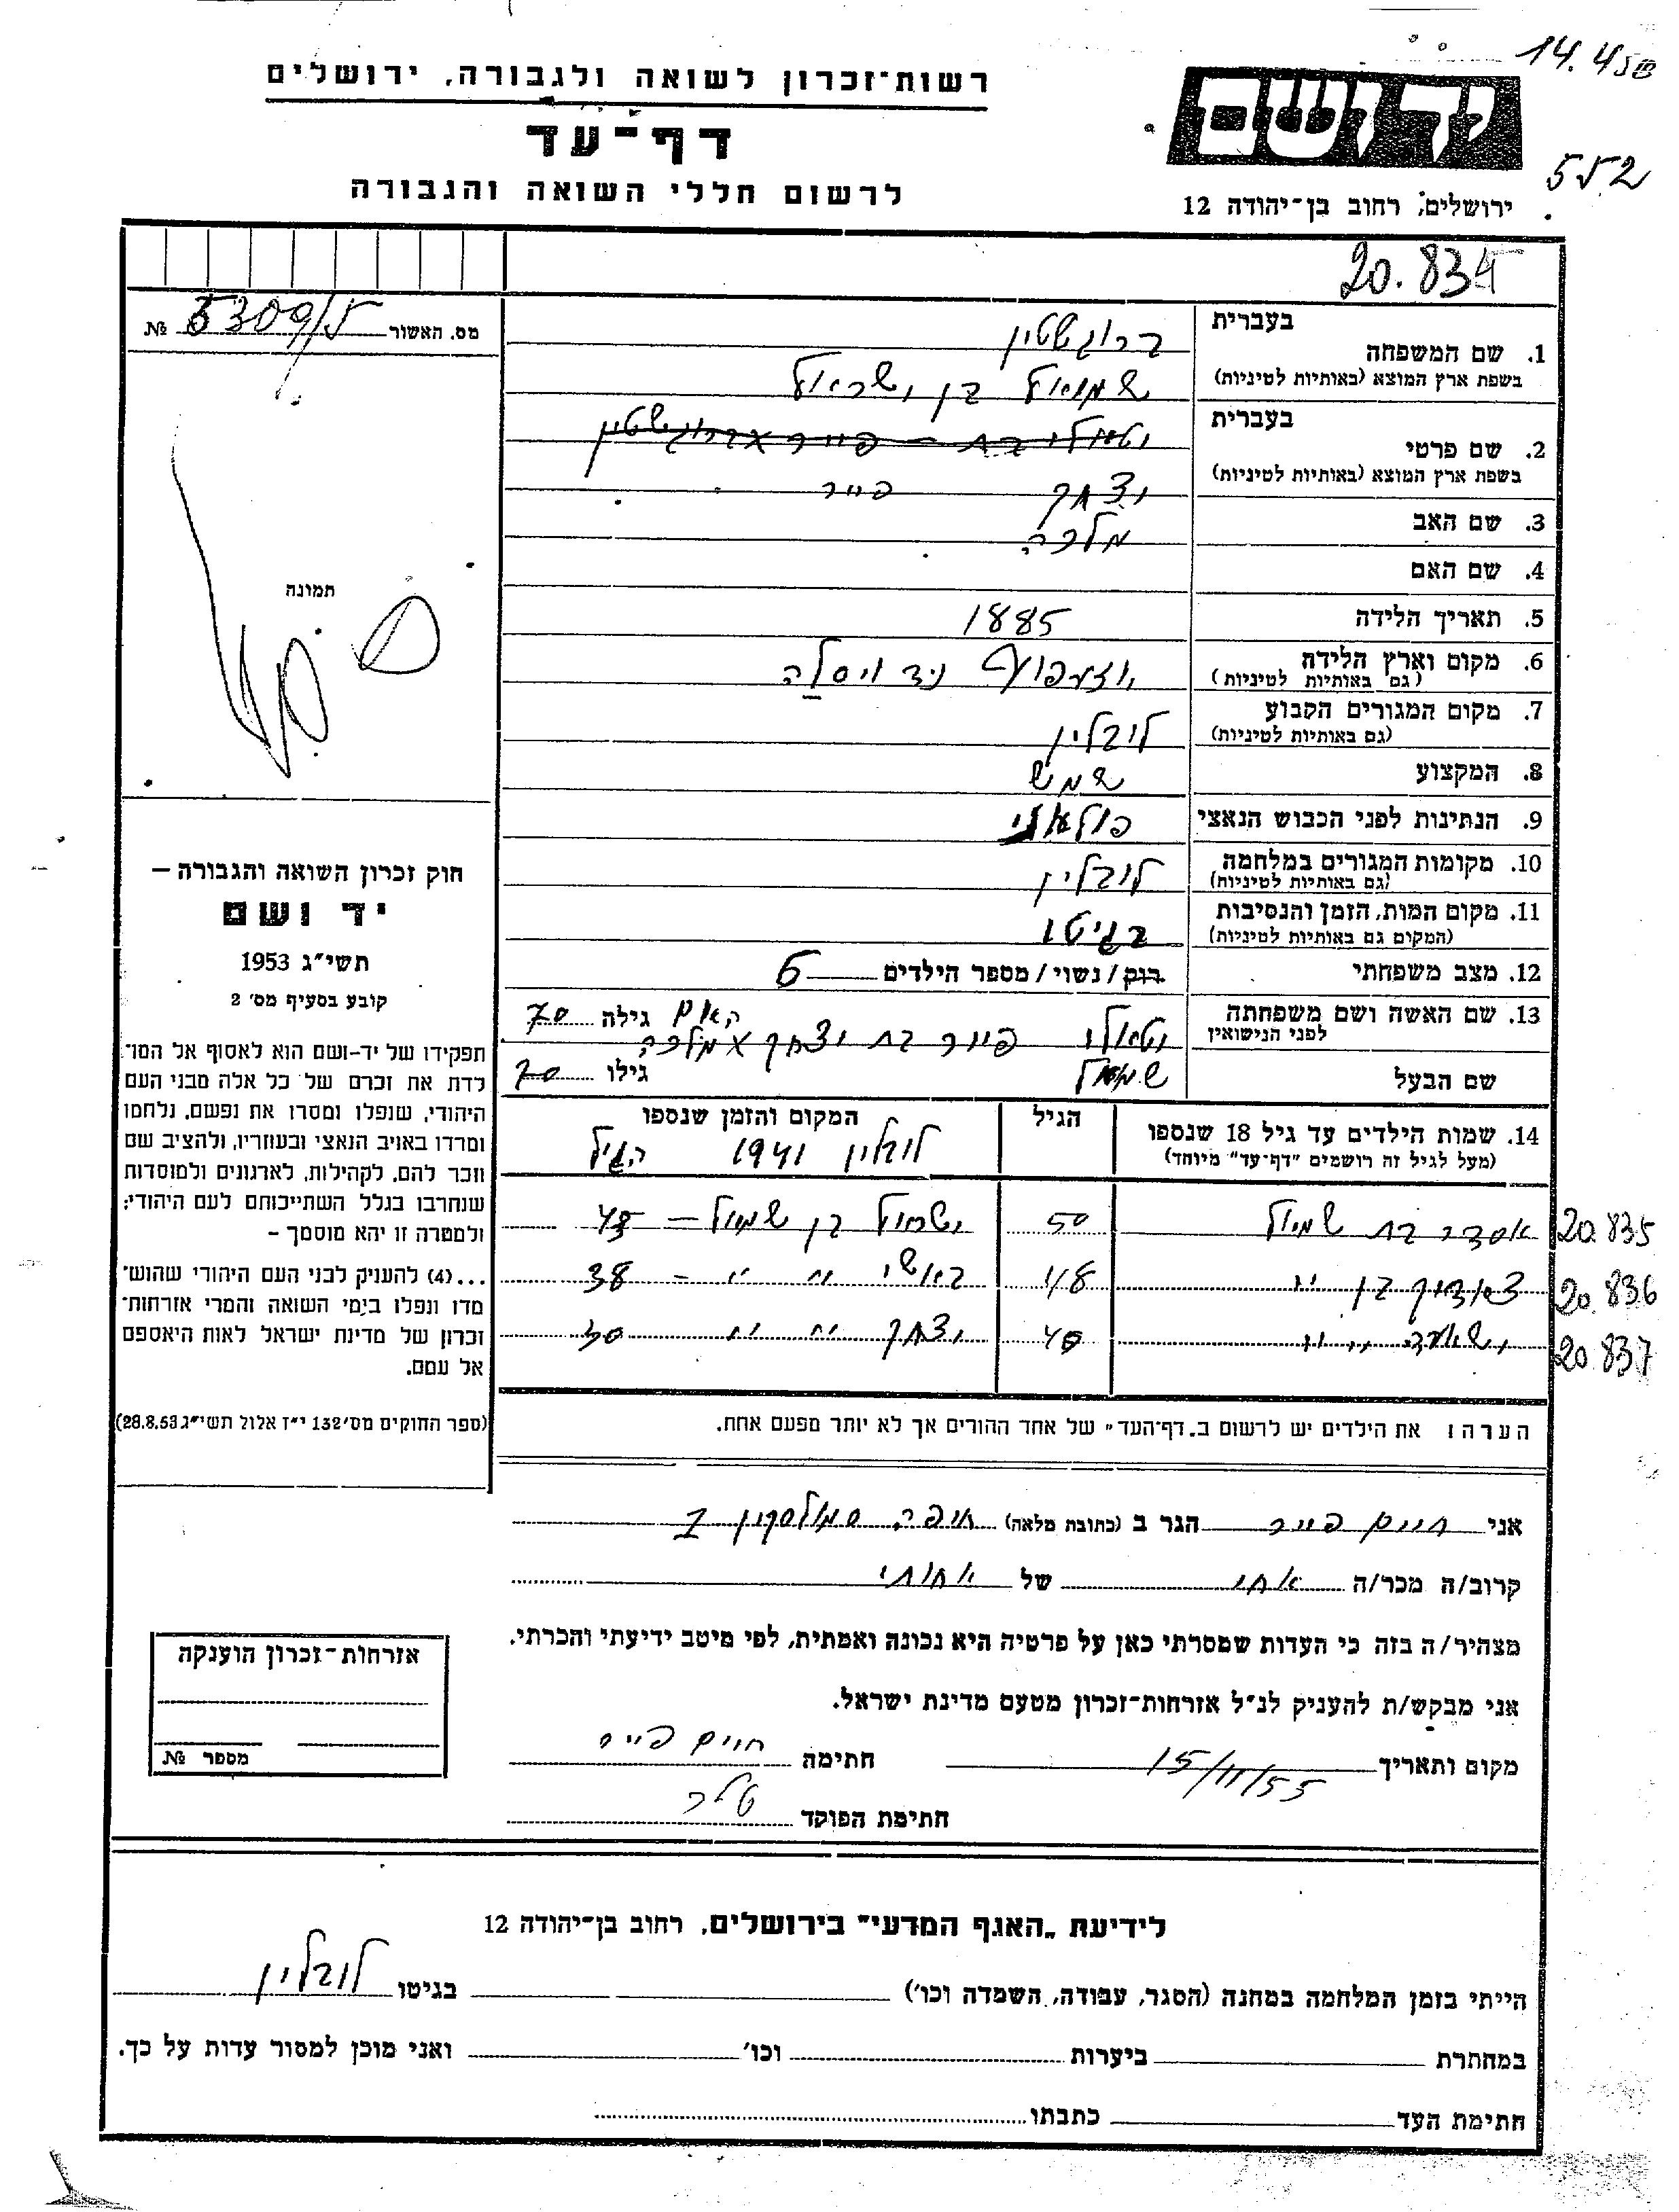 14.4
רשות־זכרון לשואה ולגבורה, ירושלים
יד ושם
דף־עד
552
לרשום חללי השואה והגבורה
ירושלים, רחוב בן־יהודה 12
20.834
מס. האשור № 5309/5
בעברית
1. שם המשפחה ברוגשטין
בשפת ארץ המוצא (באותיות לטיניות) שמואל בן ישראל
בעברית
2. שם פרטי
בשפת ארץ המוצא (באותיות לטיניות) יצחק פייר
3. שם האב מלכה
4. שם האם
תמונה
5. תאריך הלידה 1885
6. מקום וארץ הלידה יוזפוף ניד ויסלה
(גם באותיות לטיניות)
7. מקום המגורים הקבוע לובלין
(גם באותיות לטיניות)
8. המקצוע שמש
9. הנתינות לפני הכבוש הנאצי
10. מקומות המגורים במלחמה לובלין
(גם באותיות לטיניות)
11. מקום המות, הזמן והנסיבות בגיטו
(המקום גם באותיות לטיניות)
12. מצב משפחתי רוק / נשוי / מספר הילדים 6
13. שם האשה ושם משפחתה האם גילה 70
לפני הנישואין פייר בת יצחק מלכה
שם הבעל שמואל גילו 70
14. שמות הילדים עד גיל 18 שנספו הגיל המקום והזמן שנספו
(מעל לגיל זה רושמים "דף־עד" מיוחד) לובלין 1941 הגיל
אסתר בת שמואל 50 ישראל בן שמואל – 43 20.835
בן " 48 " " – 38 20.836
" " 40 יצחק " " 30 20.837
הערה: את הילדים יש לרשום ב„דף־העד" של אחד ההורים אך לא יותר מפעם אחת.
חוק זכרון השואה והגבורה –
יד ושם
תשי"ג 1953
קובע בסעיף מס' 2
תפקידו של יד-ושם הוא לאסוף אל המו־
לדת את זכרם של כל אלה מבני העם
היהודי, שנפלו ומסרו את נפשם, נלחמו
ומרדו באויב הנאצי ובעוזריו, ולהציב שם
וזכר להם, לקהילות, לארגונים ולמוסדות
שנחרבו בגלל השתייכותם לעם היהודי;
ולמטרה זו יהא מוסמך –
...(4) להעניק לבני העם היהודי שהוש־
מדו ונפלו בימי השואה והמרי אזרחות־
זכרון של מדינת ישראל לאות היאספם
אל עמם.
(ספר החוקים מס' 132 י"ז אלול תשי"ג 28.8.53)
אני חיים פייר הגר ב (כתובת מלאה) חיפה, סמולסקין 2
קרוב/ה מכר/ה אחי של אחותי
מצהיר/ה בזה כי העדות שמסרתי כאן על פרטיה היא נכונה ואמתית, לפי מיטב ידיעתי והכרתי.
אני מבקש/ת להעניק לנ"ל אזרחות־זכרון מטעם מדינת ישראל.
מקום ותאריך 15/11/55 חתימה חיים פייר
חתימת הפוקד
אזרחות־זכרון הוענקה
מספר №
לידיעת „האגף המדעי" בירושלים, רחוב בן־יהודה 12
הייתי בזמן המלחמה במחנה (הסגר, עבודה, השמדה וכו') בגיטו לובלין
במחתרת ביערות וכו' ואני מוכן למסור עדות על כך.
חתימת העד כתבתו